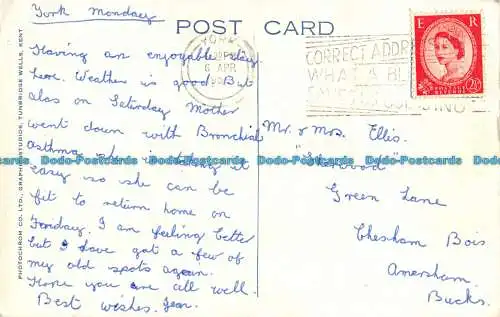 York Monday
POST CARD
Having an enjoyable day
here. Weather is good. But
alas on Saturday Mother
went down with Bronchial
asthma. She is taking it
easy so she can be
fit to return home on
Friday. I am feeling better
but I have got a few of
my old spots again.
Hope you are all well.
Best wishes. Jean.
PHOTOCHROM CO. LTD., GRAPHIC STUDIOS, TUNBRIDGE WELLS, KENT
YORK
6 APR
CORRECT ADDR
WHAT A BL
E R
POSTAGE REVENUE
2½D
Mr. & Mrs. Ellis.
Green Lane
Chesham Bois
Amersham.
Bucks.
Dodo-Postcards Dodo-Postcards Dodo-Postcards Dodo-Postcards Dodo-Postcards